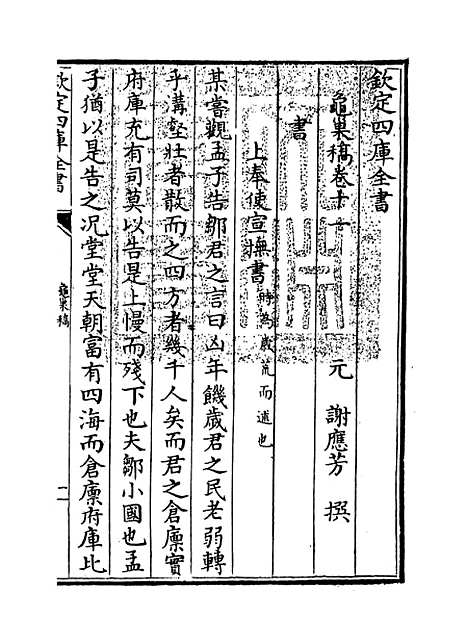 欽定四庫全書
龜巢稿卷十一
元 謝應芳 撰
書
上奉使宣撫書 時為歲荒而逋也
某嘗觀孟子告鄒君之言曰凶年饑歲君之民老弱轉
乎溝壑壯者散而之四方者幾千人矣而君之倉廩實
府庫充有司莫以告是上慢而殘下也夫鄒小國也孟
子猶以是告之况堂堂天朝富有四海而倉廩府庫比
欽定四庫全書
龜巢稿